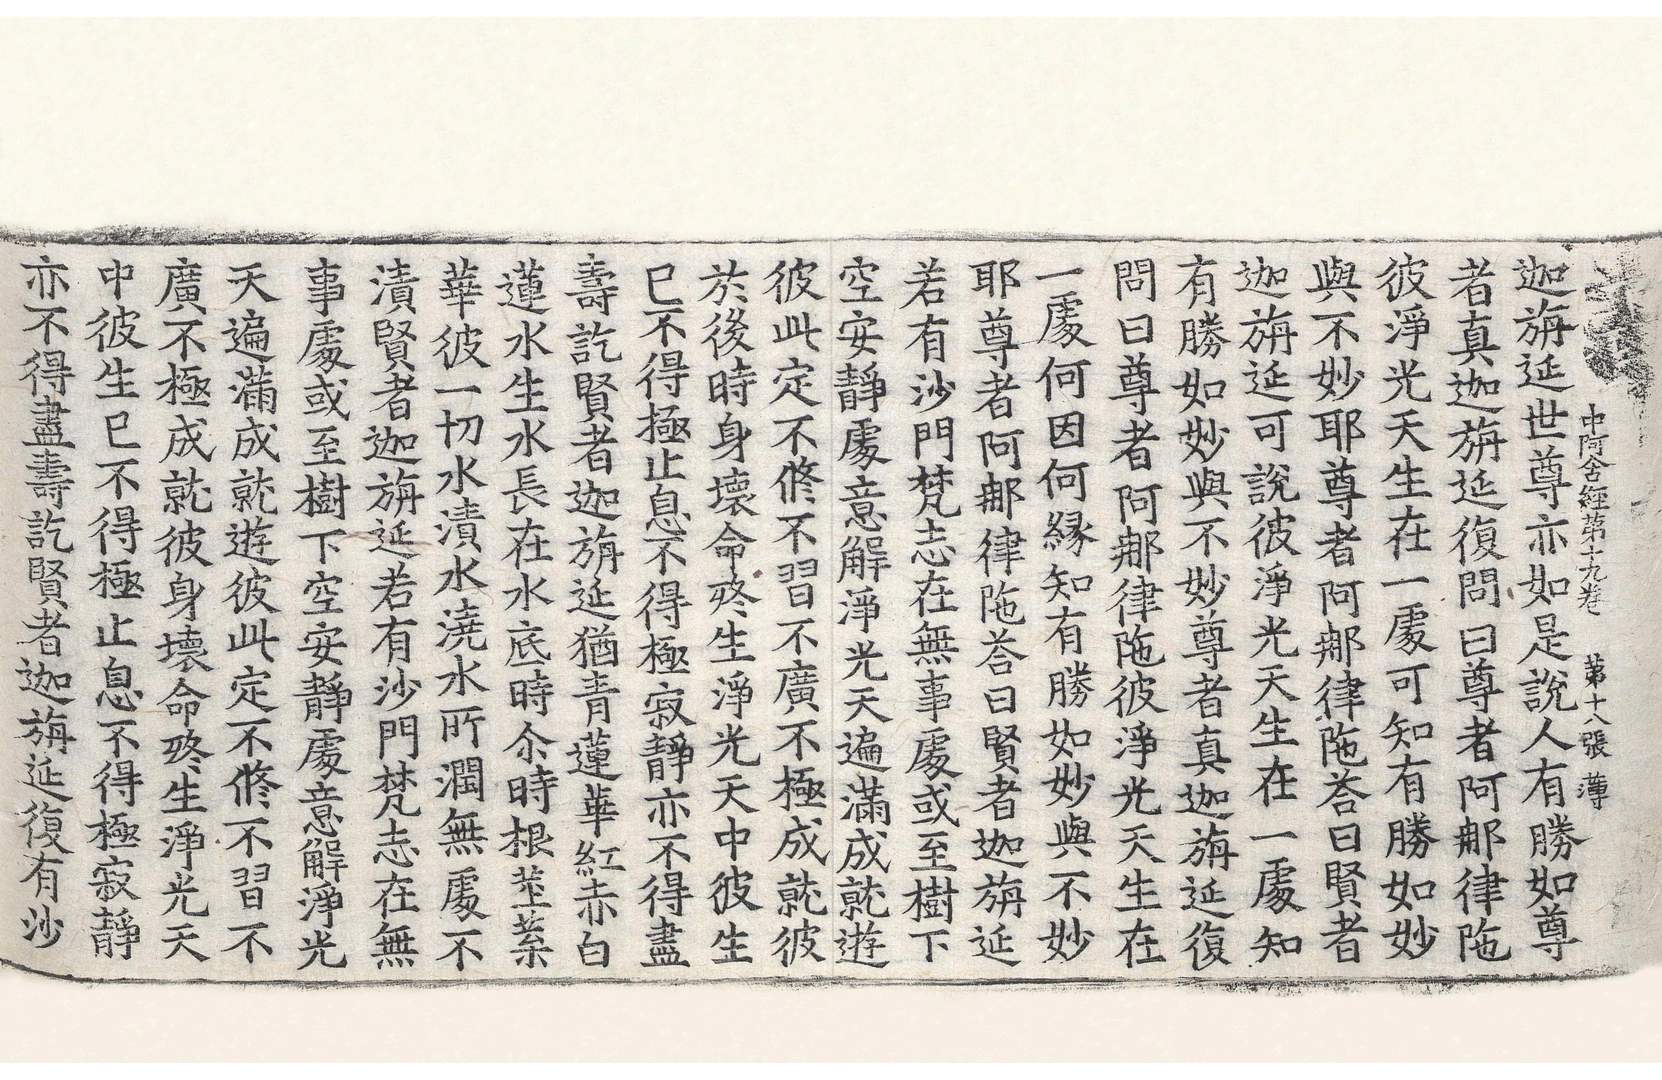 中阿含經第十九卷　第十八張　薄
迦旃延世尊亦如是說人有勝如尊
者真迦旃延復問曰尊者阿那律陁
彼淨光天生在一處可知有勝如妙
與不妙耶尊者阿那律陁荅曰賢者
迦旃延可說彼淨光天生在一處知
有勝如妙與不妙尊者真迦旃延復
問曰尊者阿那律陁彼淨光天生在
一處何因何緣知有勝如妙與不妙
耶尊者阿那律陁荅曰賢者迦旃延
若有沙門梵志在無事處或至樹下
空安靜處意解淨光天遍滿成就遊
彼此定不修不習不廣不極成就彼
於後時身壞命終生淨光天中彼生
已不得極止息不得極寂靜亦不得盡
壽訖賢者迦旃延猶青蓮華紅赤白
蓮水生水長在水底時尒時根莖葉
華彼一切水漬水澆水所潤無處不
漬賢者迦旃延若有沙門梵志在無
事處或至樹下空安靜處意解淨光
天遍滿成就遊彼此定不修不習不
廣不極成就彼身壞命終生淨光天
中彼生已不得極止息不得極寂靜
亦不得盡壽訖賢者迦旃延復有沙